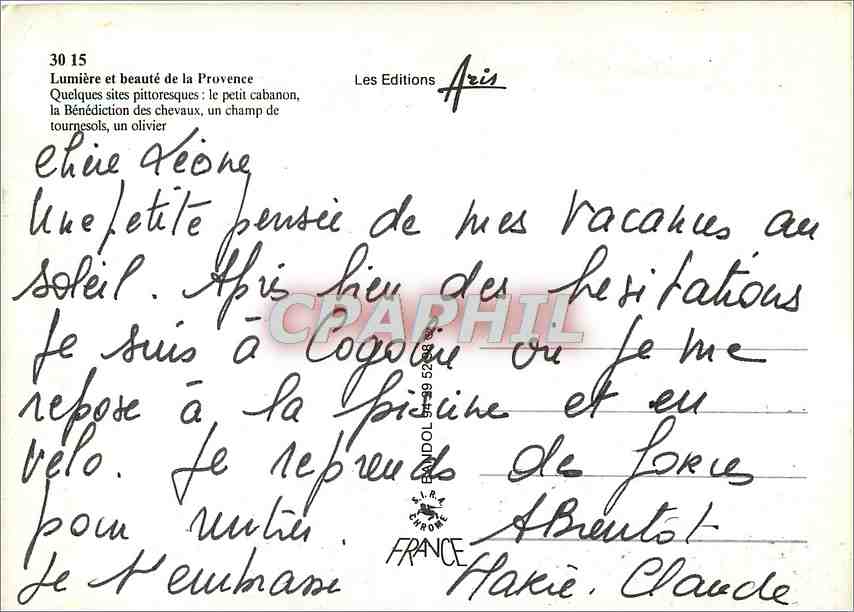 30 15
Lumière et beauté de la Provence
Quelques sites pittoresques : le petit cabanon,
la Bénédiction des chevaux, un champ de
tournesols, un olivier
Les Editions Aris
Chère Léone
Une petite pensée de mes vacances au
soleil. Après bien des hesitations
Je suis à Cogolin où je me
repose à la piscine et en
vélo. Je reprends des forces
pour rentrer. A Bientôt
Je t'embrasse Marie. Claude
CPAPHIL
BANDOL 94 29 52 98 ©
S.I.R.A.
CHROME
FRANCE